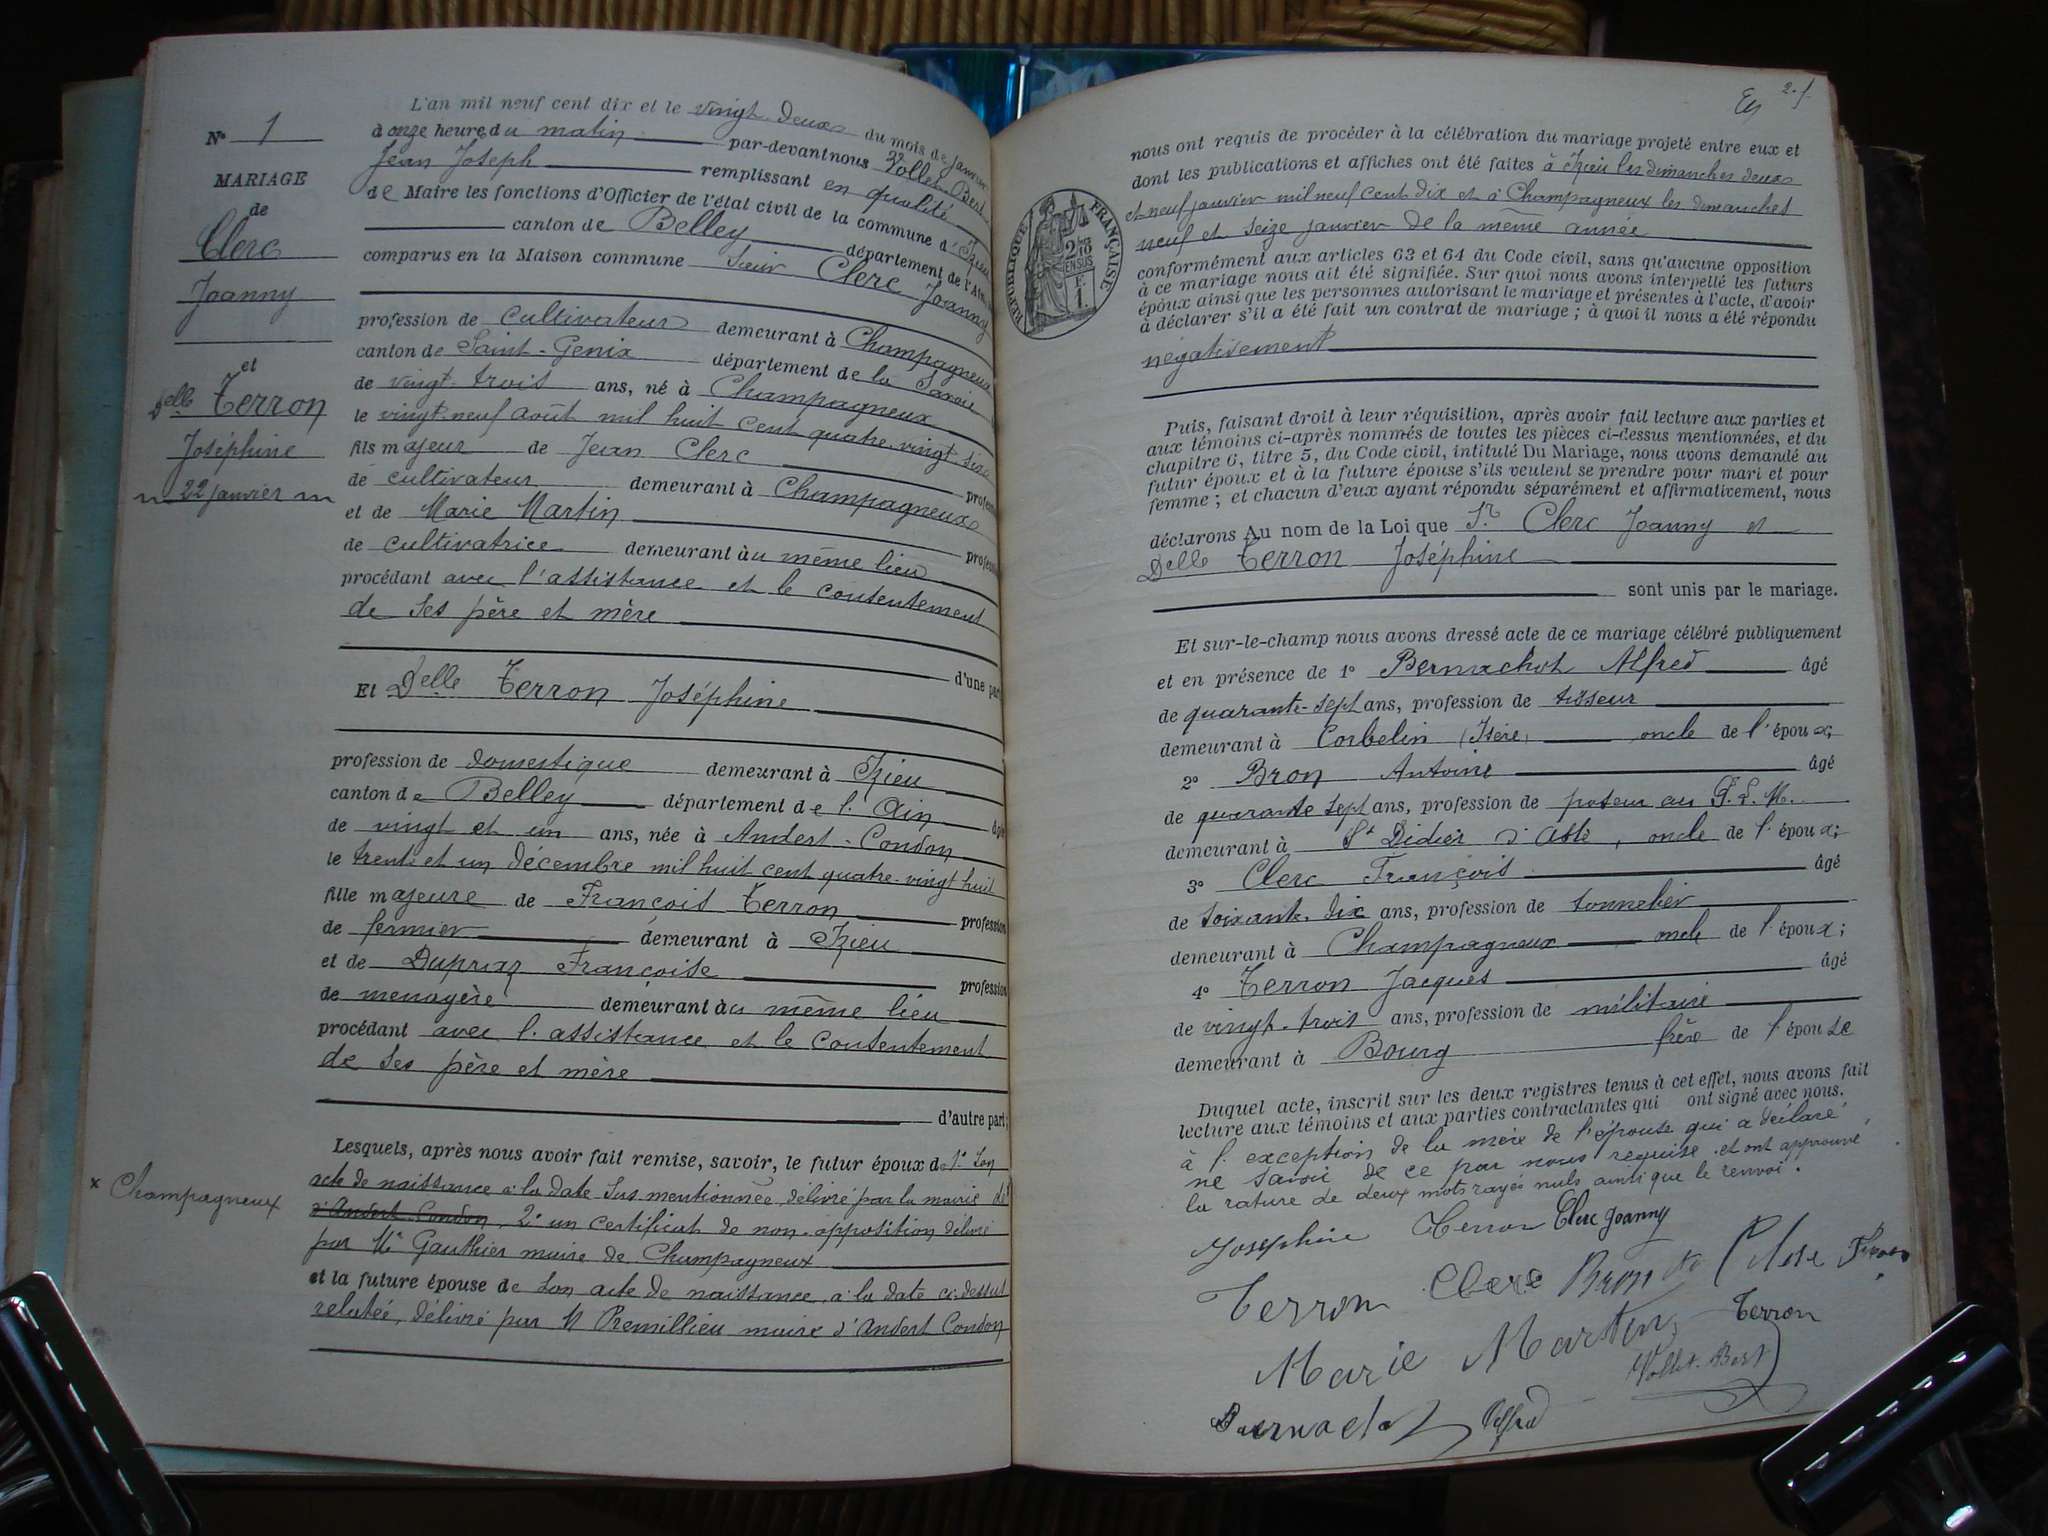 N° 1
MARIAGE
de
Clerc
Joanny
et
Delle Terron
Joséphine
22 janvier
L'an mil neuf cent dix et le vingt-deux du mois de janvier
à onze heures du matin par-devant nous Vollet-Bert
Jean Joseph remplissant en qualité
de Maire les fonctions d'Officier de l'état civil de la commune d'Izieu
canton de Belley département de l'Ain
comparus en la Maison commune Sieur Clerc Joanny
profession de cultivateur demeurant à Champagneux
canton de Saint-Genix département de la Savoie
de vingt-trois ans, né à Champagneux
le vingt-neuf août mil huit cent quatre-vingt six
fils majeur de Jean Clerc profession
de cultivateur demeurant à Champagneux
et de Marie Martin profession
de cultivatrice demeurant au même lieu
procédant avec l'assistance et le consentement
de ses père et mère
d'une part
Et Delle Terron Joséphine
profession de domestique demeurant à Izieu
canton de Belley département de l'Ain âgée
de vingt et un ans, née à Andert-Condon
le trente et un décembre mil huit cent quatre-vingt huit
fille majeure de François Terron profession
de fermier demeurant à Izieu
et de Dupraz Françoise profession
de menagère demeurant au même lieu
procédant avec l'assistance et le consentement
de ses père et mère
d'autre part;
Lesquels, après nous avoir fait remise, savoir, le futur époux de 1° son
acte de naissance à la date sus mentionnée, délivré par la mairie de x
x Champagneux
d'Andert-Condon, 2° un certificat de non-opposition délivré
par Mr Gauthier maire de Champagneux
et la future épouse de son acte de naissance, à la date ci-dessus
relatée, délivré par M Premillieu maire d'Andert Condon
2.
nous ont requis de procéder à la célébration du mariage projeté entre eux et
dont les publications et affiches ont été faites à Izieu les dimanches deux
et neuf janvier mil neuf cent dix et à Champagneux les dimanches
neuf et seize janvier de la même année
conformément aux articles 63 et 64 du Code civil, sans qu'aucune opposition
à ce mariage nous ait été signifiée. Sur quoi nous avons interpellé les futurs
époux ainsi que les personnes autorisant le mariage et présentes à l'acte, d'avoir
à déclarer s'il a été fait un contrat de mariage; à quoi il nous a été répondu
négativement
RÉPUBLIQUE FRANÇAISE
2/10 EN SUS
F.
1.
Puis, faisant droit à leur réquisition, après avoir fait lecture aux parties et
aux témoins ci-après nommés de toutes les pièces ci-dessus mentionnées, et du
chapitre 6, titre 5, du Code civil, intitulé Du Mariage, nous avons demandé au
futur époux et à la future épouse s'ils veulent se prendre pour mari et pour
femme; et chacun d'eux ayant répondu séparément et affirmativement, nous
déclarons Au nom de la Loi que Sr Clerc Joanny et
Delle Terron Joséphine
sont unis par le mariage.
Et sur-le-champ nous avons dressé acte de ce mariage célébré publiquement
et en présence de 1° Bernachot Alfred âgé
de quarante-sept ans, profession de tisseur
demeurant à Corbelin (Isère) oncle de l'époux;
2° Bron Antoine âgé
de quarante sept ans, profession de poseur au P.L.M.
demeurant à St Didier d'Aoste, oncle de l'époux;
3° Clerc François âgé
de soixante-dix ans, profession de tonnelier
demeurant à Champagneux oncle de l'époux;
4° Terron Jacques âgé
de vingt-trois ans, profession de militaire
demeurant à Bourg frère de l'épouse
Duquel acte, inscrit sur les deux registres tenus à cet effet, nous avons fait
lecture aux témoins et aux parties contractantes qui ont signé avec nous.
à l'exception de la mère de l'épouse qui a déclaré
ne savoir de ce par nous requise et ont approuvé
la rature de deux mots rayés nuls ainsi que le renvoi.
Josephine Terron Clerc Joanny
Terron Clerc Bron
Marie Martin Terron
Vollet-Bert
Bernachot Alfred